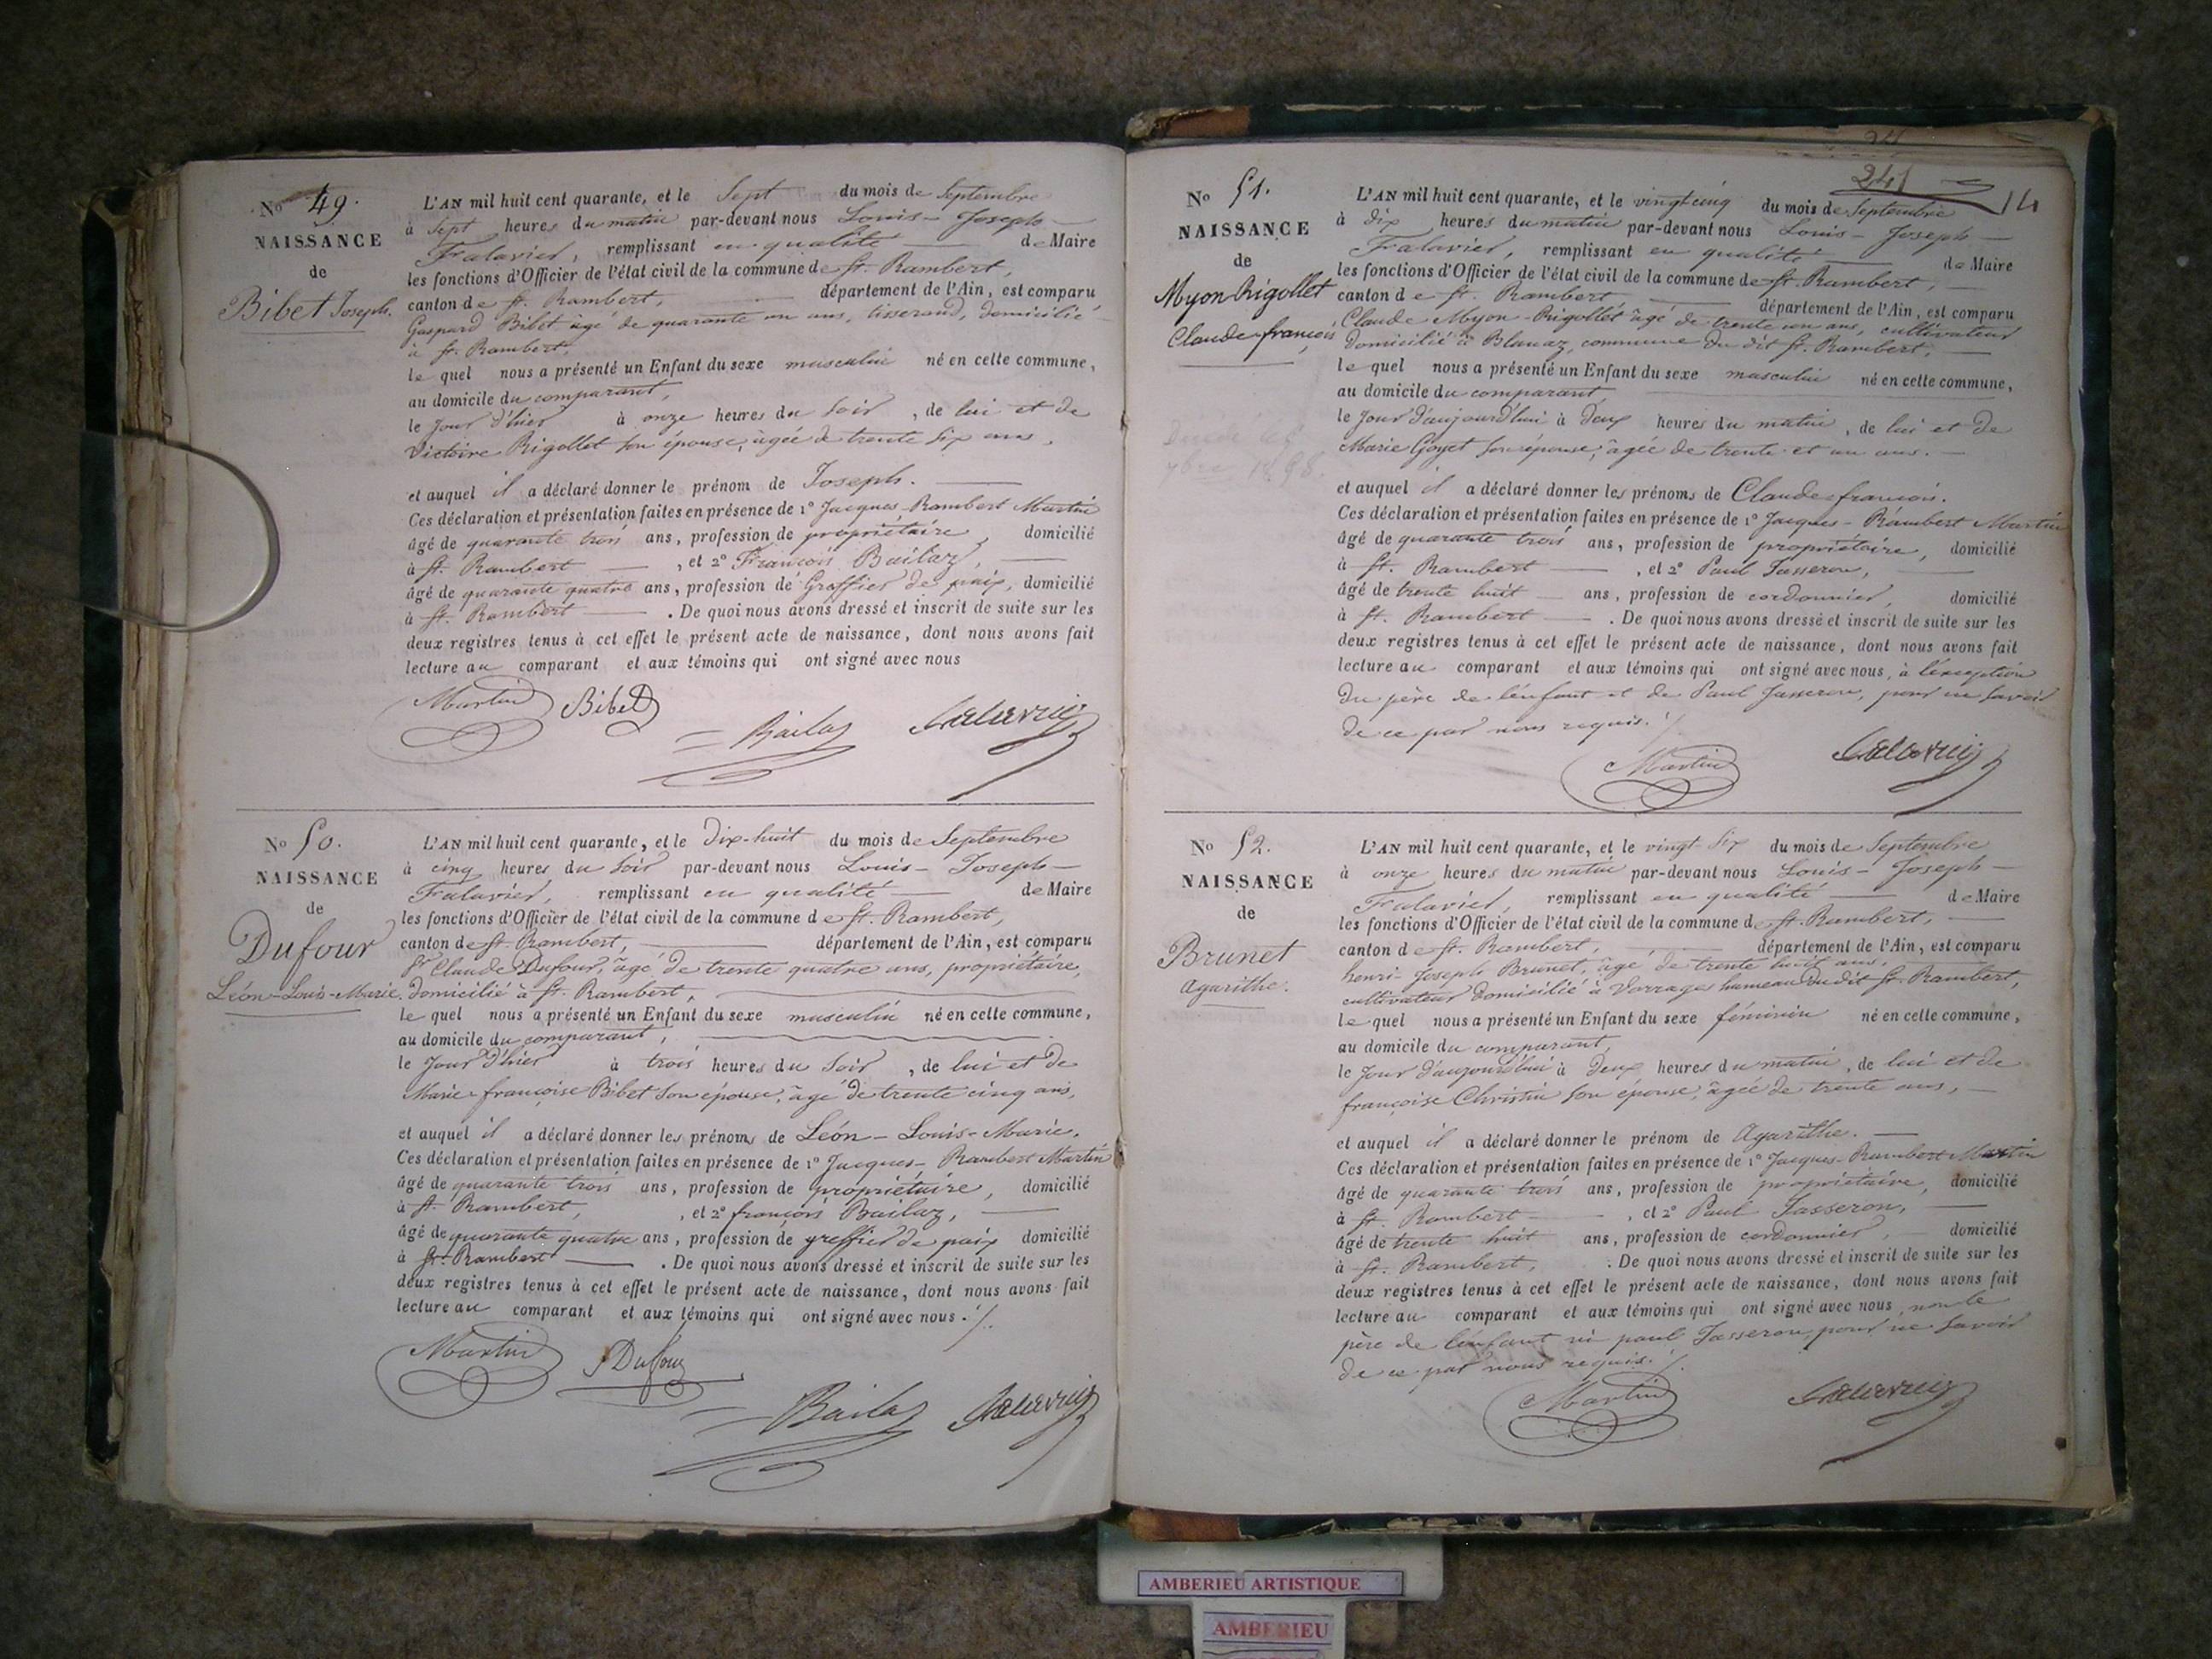 No 49.
NAISSANCE
de
Bibet Joseph.
L'AN mil huit cent quarante, et le Sept du mois de Septembre
à Sept heures du matin par-devant nous Louis-Joseph
Falavier, remplissant en qualité de Maire
les fonctions d'Officier de l'état civil de la commune de St. Rambert,
canton de St. Rambert, département de l'Ain, est comparu
Gaspard Bibet âgé de quarante un ans, tisserand, domicilié
à St. Rambert,
le quel nous a présenté un Enfant du sexe masculin né en cette commune,
au domicile du comparant,
le jour d'hier à onze heures du soir, de lui et de
Victoire Rigollet son épouse, âgée de trente six ans,
et auquel il a déclaré donner le prénom de Joseph.
Ces déclaration et présentation faites en présence de 1º Jacques-Rambert Martin
âgé de quarante trois ans, profession de propriétaire, domicilié
à St. Rambert, et 2º François Bailaz,
âgé de quarante quatre ans, profession de Greffier de paix, domicilié
à St. Rambert. De quoi nous avons dressé et inscrit de suite sur les
deux registres tenus à cet effet le présent acte de naissance, dont nous avons fait
lecture au comparant et aux témoins qui ont signé avec nous
Martin Bibet Bailaz
No 50.
NAISSANCE
de
Dufour
Léon-Louis-Marie.
L'AN mil huit cent quarante, et le Dix-huit du mois de Septembre
à cinq heures du soir par-devant nous Louis-Joseph
Falavier, remplissant en qualité de Maire
les fonctions d'Officier de l'état civil de la commune de St. Rambert,
canton de St. Rambert, département de l'Ain, est comparu
Sr Claude Dufour, âgé de trente quatre ans, propriétaire,
domicilié à St. Rambert,
le quel nous a présenté un Enfant du sexe masculin né en cette commune,
au domicile du comparant,
le jour d'hier à trois heures du soir, de lui et de
Marie-françoise Bibet son épouse, âgé de trente cinq ans,
et auquel il a déclaré donner les prénoms de Léon-Louis-Marie.
Ces déclaration et présentation faites en présence de 1º Jacques-Rambert Martin
âgé de quarante trois ans, profession de propriétaire, domicilié
à St. Rambert, et 2º françois Bailaz,
âgé de quarante quatre ans, profession de greffier de paix domicilié
à St. Rambert. De quoi nous avons dressé et inscrit de suite sur les
deux registres tenus à cet effet le présent acte de naissance, dont nous avons fait
lecture au comparant et aux témoins qui ont signé avec nous.
Martin Dufour
Bailaz
241
14
No 51.
NAISSANCE
de
Myon-Rigollet
Claude-françois
L'AN mil huit cent quarante, et le vingt cinq du mois de Septembre
à dix heures du matin par-devant nous Louis-Joseph
Falavier, remplissant en qualité de Maire
les fonctions d'Officier de l'état civil de la commune de St. Rambert,
canton de St. Rambert département de l'Ain, est comparu
Claude Myon-Rigollet âgé de trente un ans, cultivateur
domicilié à Blanaz, commune du dit St. Rambert,
le quel nous a présenté un Enfant du sexe masculin né en cette commune,
au domicile du comparant
le jour d'aujourd'hui à deux heures du matin, de lui et de
Marie Goyet son épouse, âgée de trente et un ans.
et auquel il a déclaré donner les prénoms de Claude-françois.
Ces déclaration et présentation faites en présence de 1º Jacques-Rambert Martin
âgé de quarante trois ans, profession de propriétaire, domicilié
à St. Rambert, et 2º Paul Jasseron,
âgé de trente huit ans, profession de cordonnier, domicilié
à St. Rambert. De quoi nous avons dressé et inscrit de suite sur les
deux registres tenus à cet effet le présent acte de naissance, dont nous avons fait
lecture au comparant et aux témoins qui ont signé avec nous, à l'exception
du père de l'enfant et de Paul Jasseron, pour ne savoir
de ce par nous requis.
Martin
No 52.
NAISSANCE
de
Brunet
Agarithe.
L'AN mil huit cent quarante, et le vingt-six du mois de Septembre
à onze heures du matin par-devant nous Louis-Joseph
Falavier, remplissant en qualité de Maire
les fonctions d'Officier de l'état civil de la commune de St. Rambert,
canton de St. Rambert, département de l'Ain, est comparu
henri-Joseph Brunet, âgé de trente huit ans,
cultivateur domicilié à Vorrages hameau dudit St. Rambert,
le quel nous a présenté un Enfant du sexe féminin né en cette commune,
au domicile du comparant,
le jour d'aujourd'hui à deux heures du matin, de lui et de
françoise Christin son épouse, âgée de trente ans,
et auquel il a déclaré donner le prénom de Agarithe.
Ces déclaration et présentation faites en présence de 1º Jacques-Rambert Martin
âgé de quarante trois ans, profession de propriétaire, domicilié
à St. Rambert, et 2º Paul Jasseron,
âgé de trente huit ans, profession de cordonnier, domicilié
à St. Rambert, . De quoi nous avons dressé et inscrit de suite sur les
deux registres tenus à cet effet le présent acte de naissance, dont nous avons fait
lecture au comparant et aux témoins qui ont signé avec nous, non le
père de l'enfant ni paul Jasseron, pour ne savoir
de ce par nous requis.
Martin
AMBERIEU ARTISTIQUE
AMBERIEU